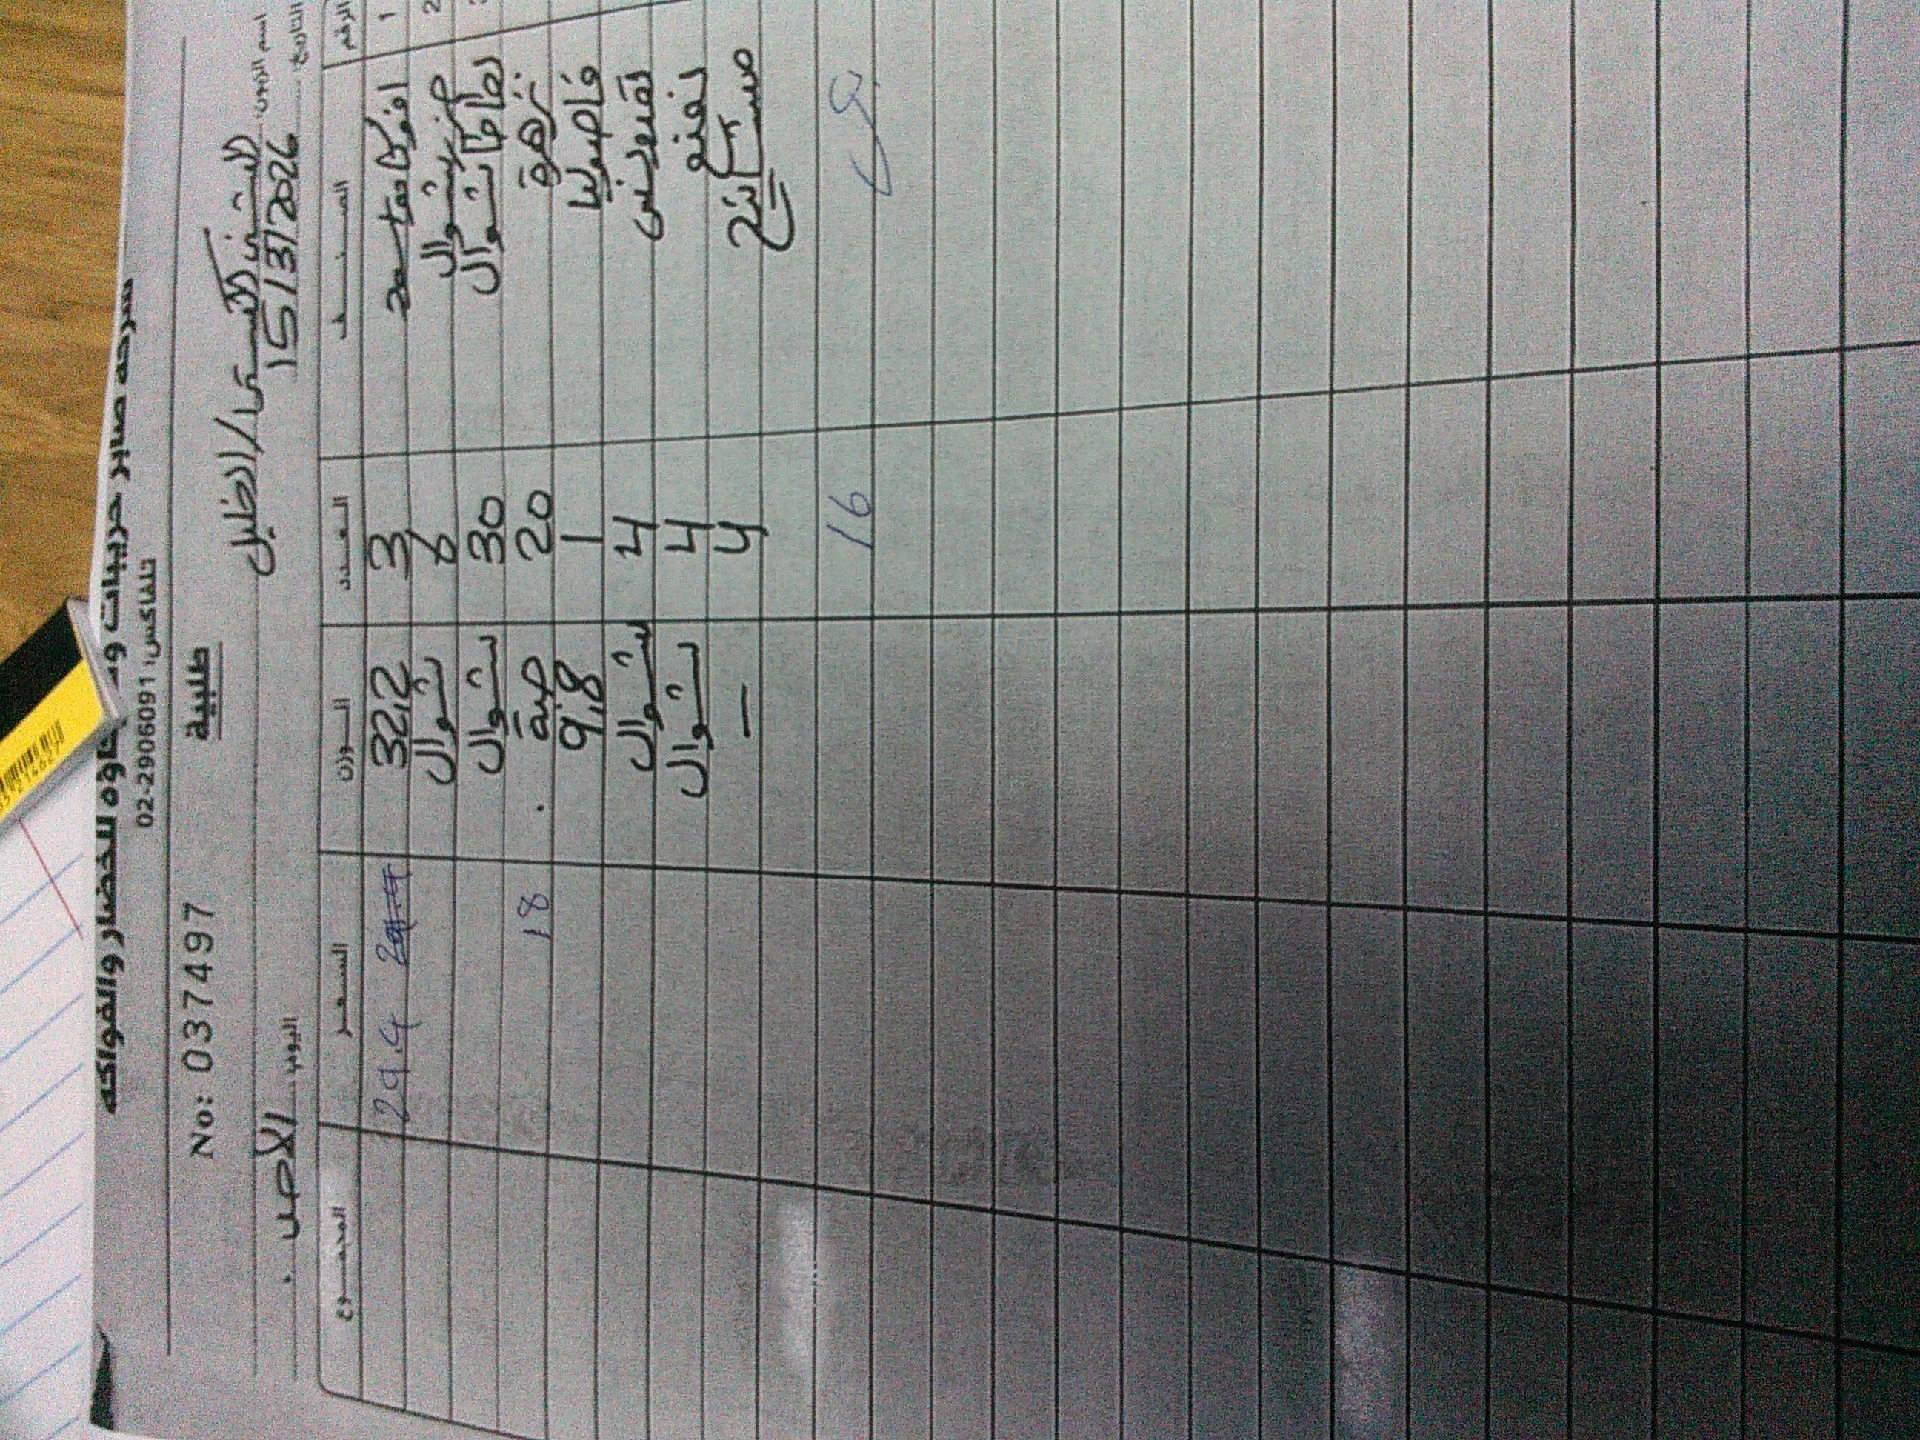 شركة صابر حريبات و للخضار والفواكه
تلفاكس: 02-2906091
طلبية
No: 037497
اسم الزبون: / الخليل
التاريخ: 15/3/2026 اليوم: الأحد
الرقم الصنف العدد الوزن السعر المجموع
1 افوكادو 3 32,2 29.4
2 شوال 8 شوال
بطاطا شوال 30 شوال
زهرة 20 حبة 18
فاصوليا 1 9,8
بقدونس 4 شوال
نعنع 4 شوال
4 —
16